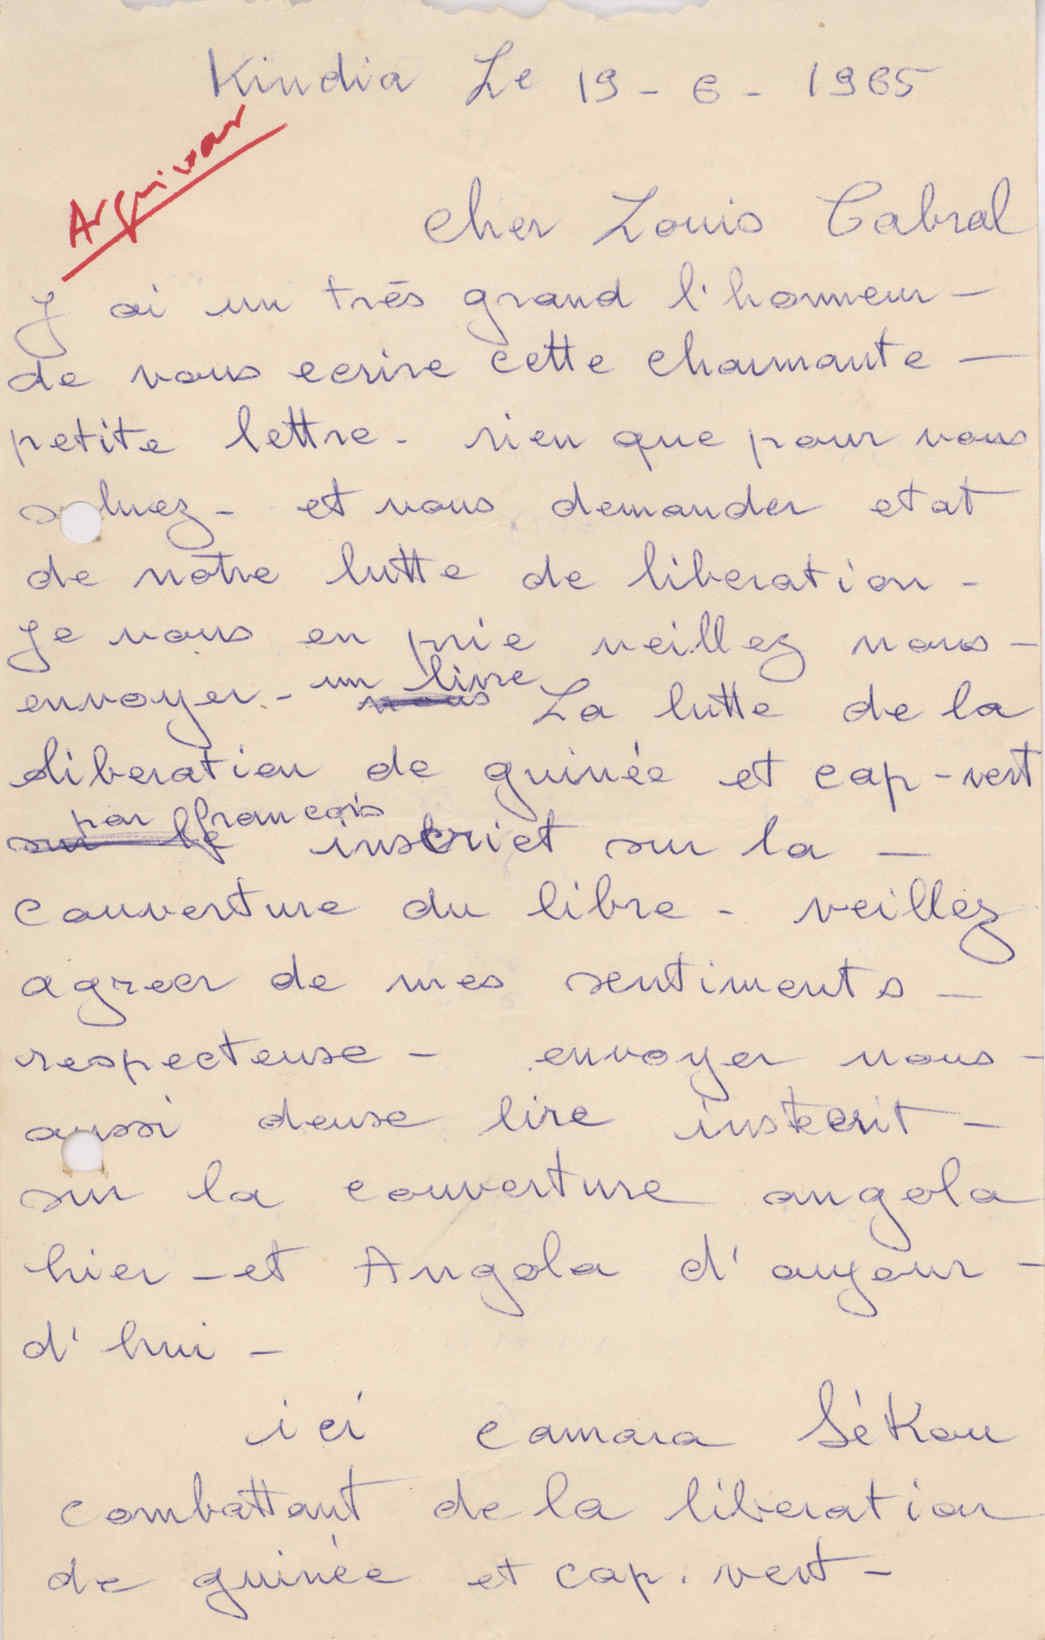 Kindia Le 19 - 6 - 1965
Arquivar
cher Louis Cabral
J ai un très grand l'honneur -
de vous ecrire cette charmante -
petite lettre - rien que pour vous
saluez - et vous demander etat
de notre lutte de liberation -
Je vous en prie veillez nous -
envoyer - un livre
nous La lutte de la
liberation de guinée et cap-vert
par francais
sur le inscriet sur la -
couverture du libre - veillez
agreer de mes sentiments -
respecteuse - envoyer nous -
aussi deuse lire inscerit -
sur la couverture angola
hier - et Angola d'aujour -
d'hui -
ici camara Sékou
combattant de la liberation
de guinée et cap. vert -